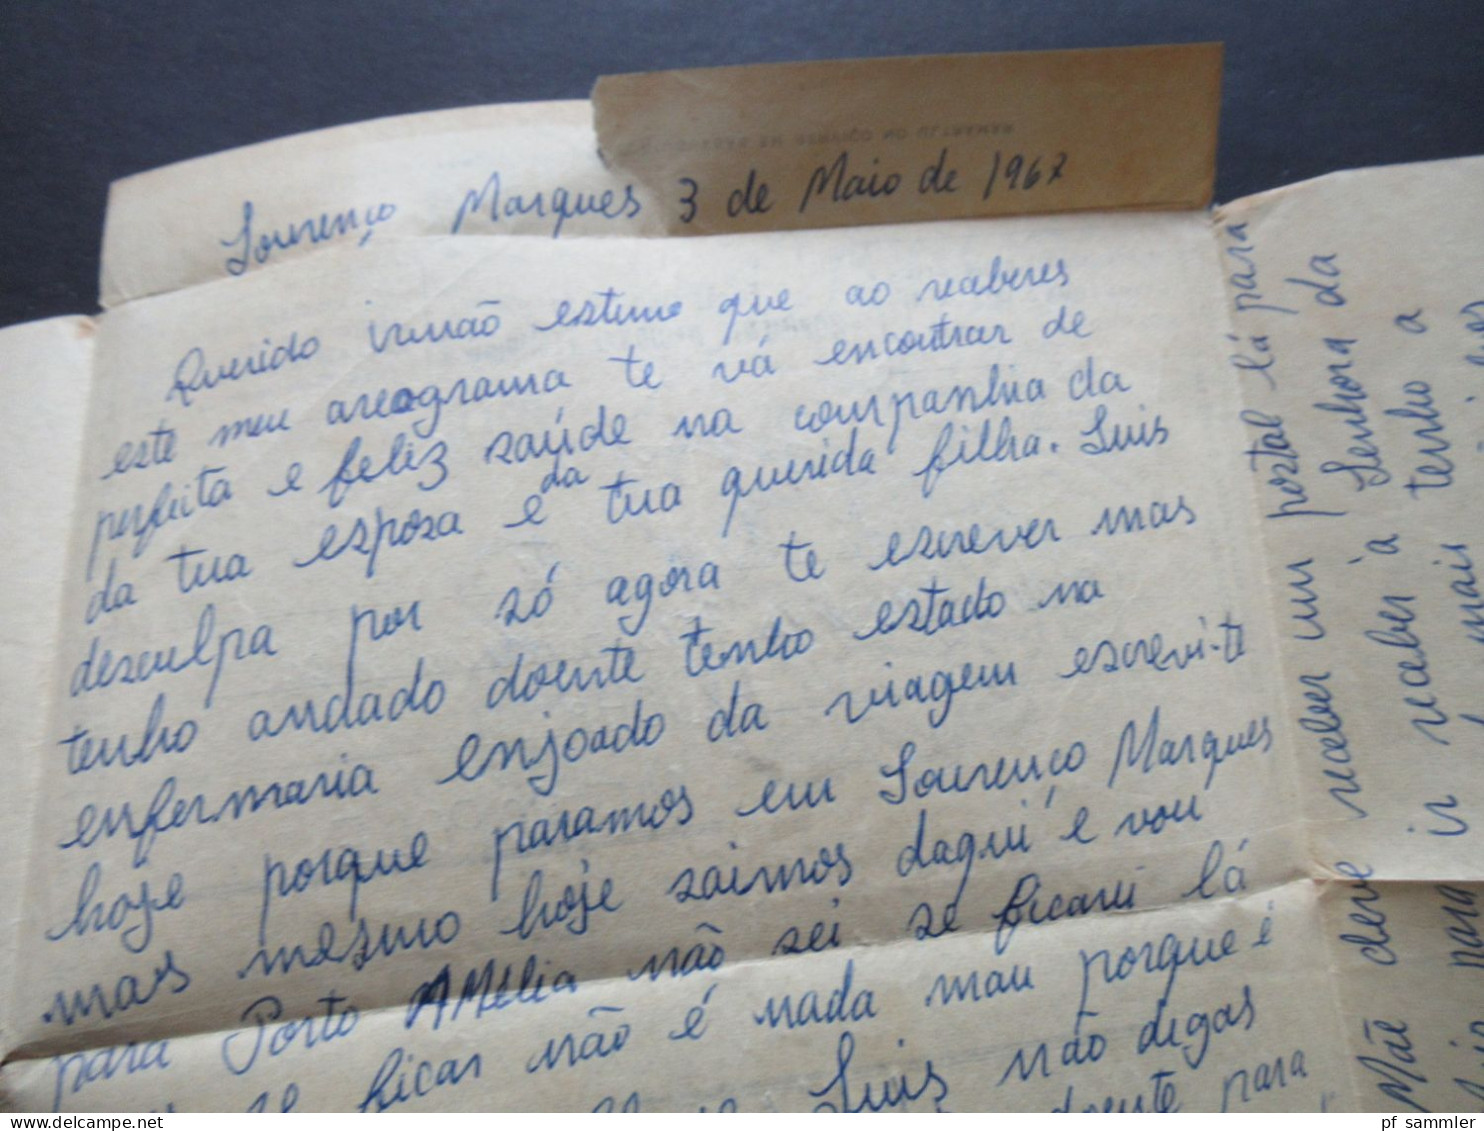 Lourenço Marques 3 de Maio de 1967
Querido irmão estimo que ao receberes
este meu areograma te vá encontrar de
perfeita e feliz saúde na companhia da
da tua esposa e da tua querida filha. Luis
desculpa por só agora te escrever mas
tenho andado doente tenho estado na
enfermaria enjoado da viagem escrevi-te
hoje porque paramos em Lourenço Marques
mas mesmo hoje saimos daqui e vou
para Porto Amélia não sei se ficarei lá
se ficar não é nada mau porque é
Luis não digas
doente para
receber um postal lá para
Mãe deve receber à Senhora da
tenho a
ir mais
para
pf sammler